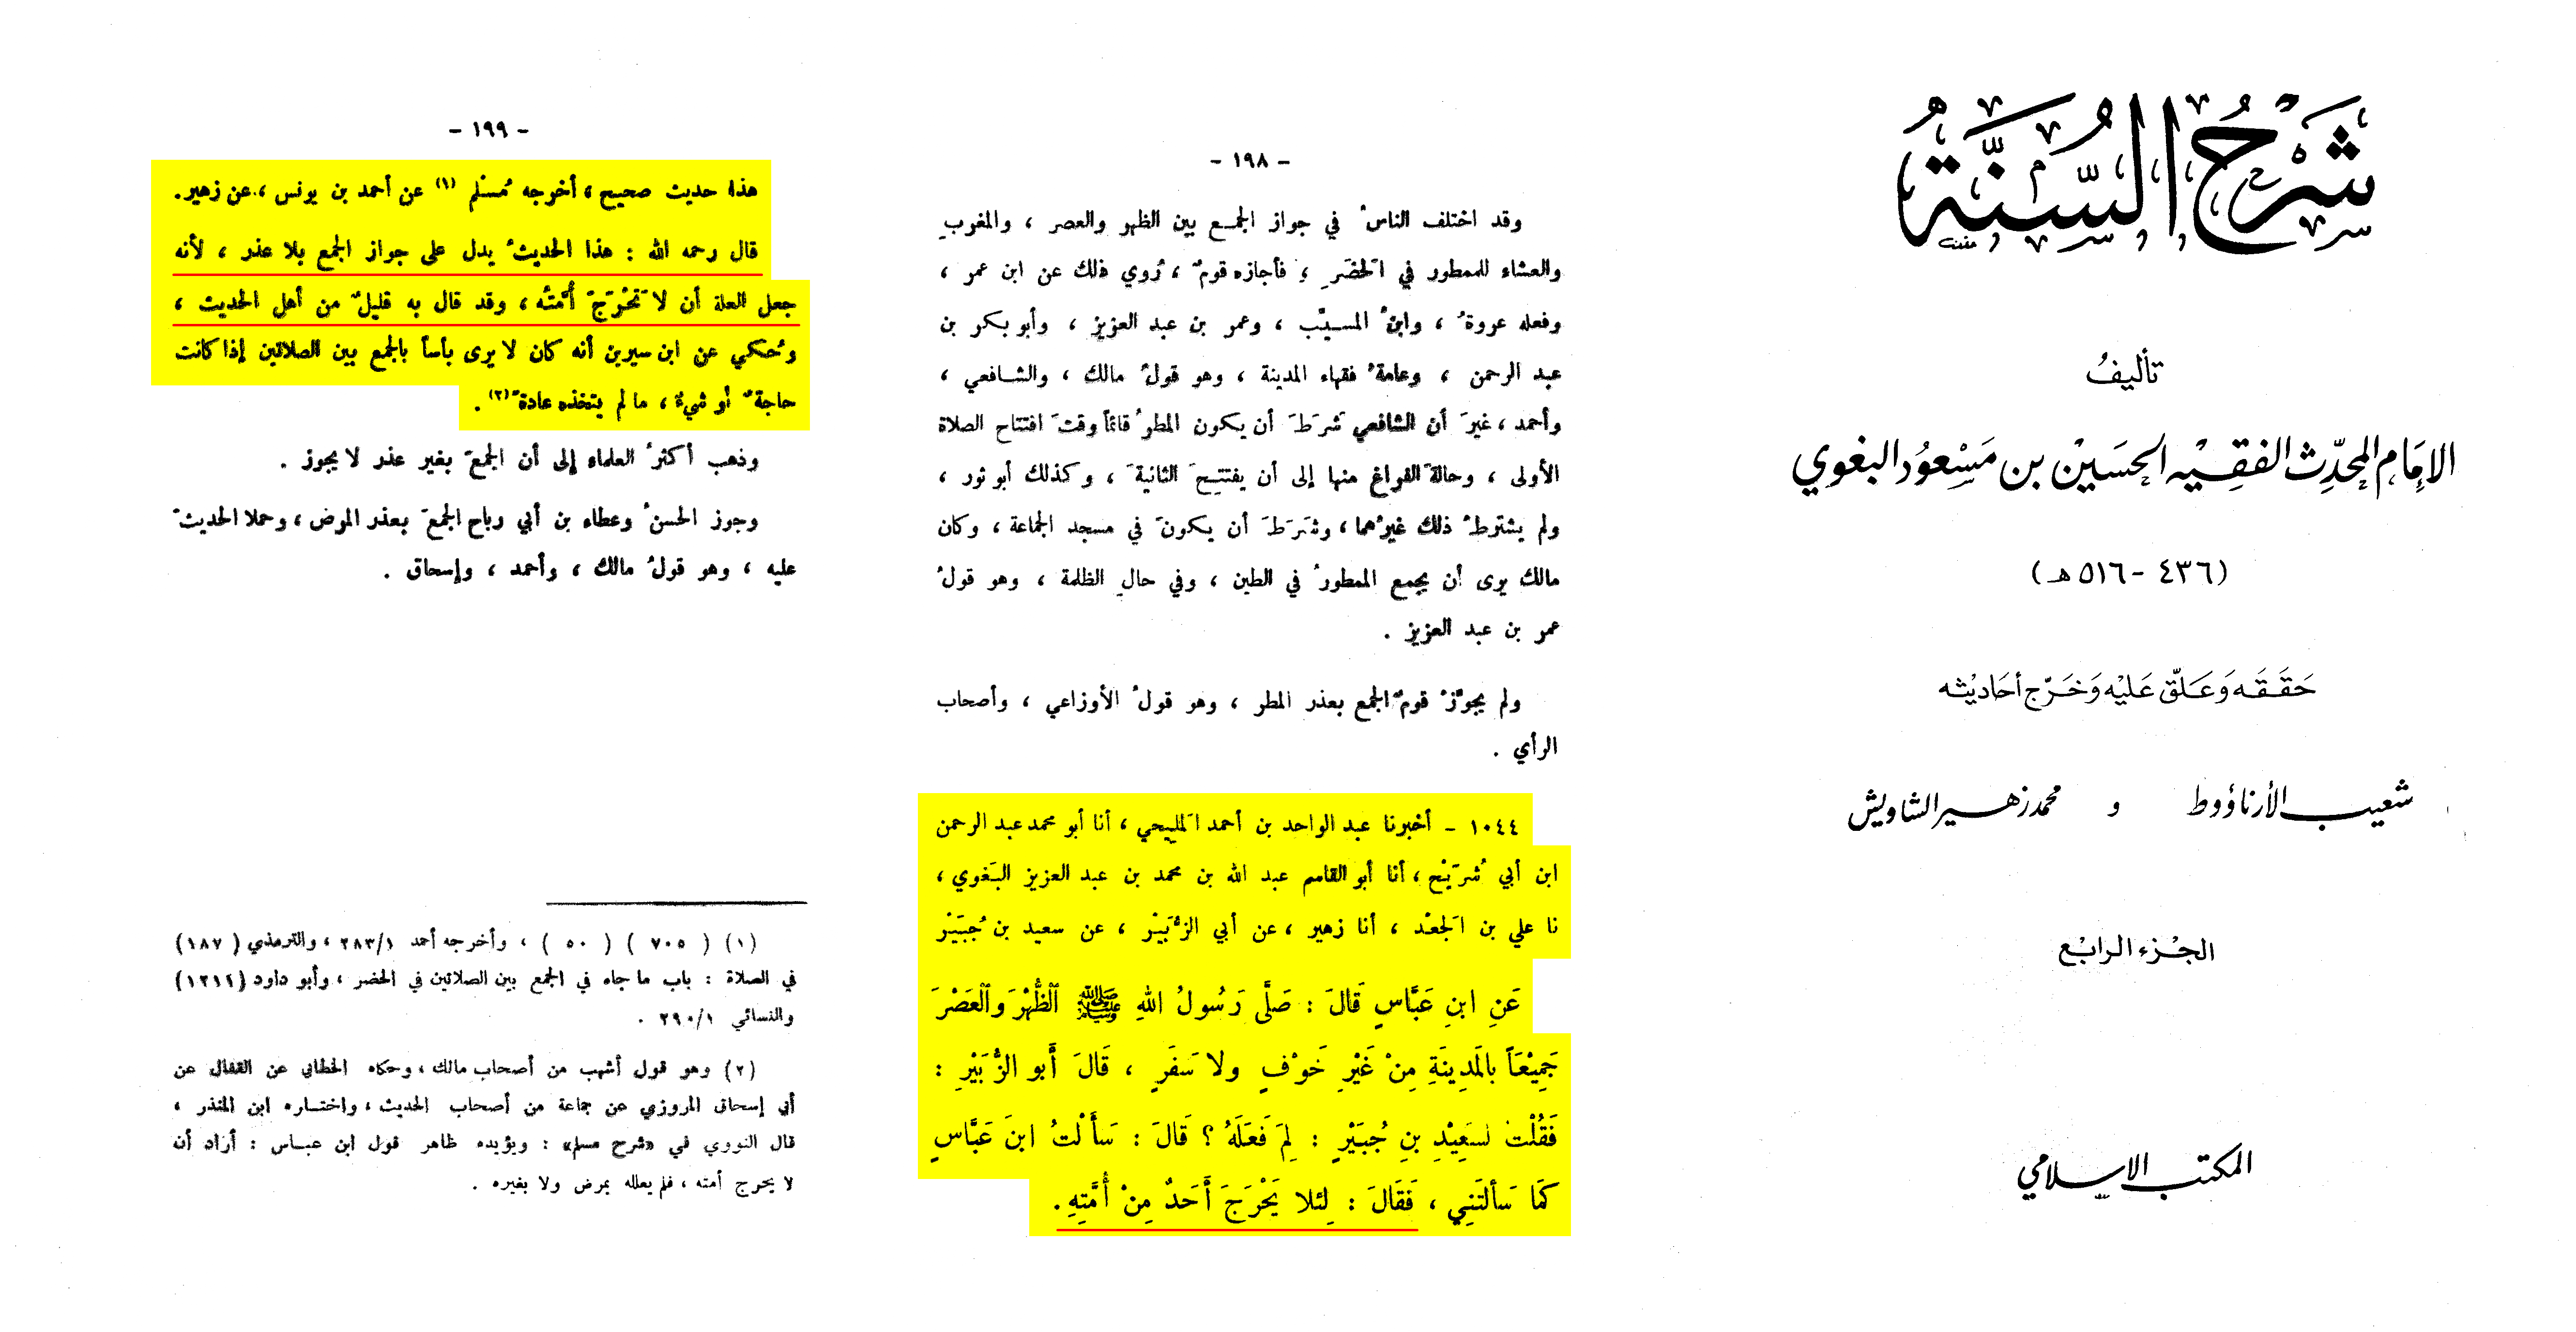 شَرْحُ السُّنَّة
تأليفُ
الإمَام المحدِّث الفقِيْه الحسَيْن بن مَسْعوُد البغوي
(٤٣٦ - ٥١٦ هـ)
حَقَّقَه وَعَلّق عَليْه وَخَرّج أحَاديْثه
شعيب الأرناؤوط و محمد زهير الشاويش
الجُزء الرابع
المكتب الإسلامي
- ١٩٨ -
وقد اختلف الناسُ في جواز الجمع بين الظهر والعصر ، والمغربِ
والعشاء للممطور في الحَضَرِ ، فأجازه قومٌ ، رُوي ذلك عن ابن عمر ،
وفعله عروةُ ، وابنُ المسيّب ، وعمر بن عبد العزيز ، وأبو بكر بن
عبد الرحمن ، وعامةُ فقهاء المدينة ، وهو قولُ مالك ، والشافعي ،
وأحمد ، غيرَ أن الشافعي شرَطَ أن يكون المطرُ قائماً وقتَ افتتاح الصلاة
الأولى ، وحالةَ الفراغ منها إلى أن يفتتحَ الثانيةَ ، وكذلك أبو ثور ،
ولم يشترطُ ذلك غيرُهما ، وشَرَطَ أن يكونَ في مسجد الجماعة ، وكان
مالك يرى أن يجمع الممطورُ في الطين ، وفي حالِ الظلمة ، وهو قولُ
عمر بن عبد العزيز .
ولم يجوِّزْ قومٌ الجمع بعذر المطر ، وهو قولُ الأوزاعي ، وأصحاب
الرأي .
١٠٤٤ - أخبرنا عبد الواحد بن أحمد المَليحي ، أنا أبو محمد عبد الرحمن
ابن أبي شُرَيْح ، أنا أبو القاسم عبد الله بن محمد بن عبد العزيز البَغوي ،
نا علي بن الجَعْد ، أنا زهير ، عن أبي الزُّبَيْر ، عن سعيد بن جُبَيْر
عَنِ ابنِ عَبَّاسٍ قَالَ : صَلَّى رَسُولُ اللهِ ﷺ ٱلظُّهْرَ وَٱلْعَصْرَ
جَمِيْعَاً بالمَدِينَةِ مِنْ غَيْرِ خَوْفٍ ولا سَفَرٍ ، قَالَ أَبو الزُّبَيْرِ :
فَقُلْتُ لسَعِيْدِ بنِ جُبَيْرٍ : لِمَ فَعَلَهُ ؟ قَالَ : سَأَلْتُ ابنَ عَبَّاسٍ
كَمَا سَألتَنِي ، فَقَالَ : لِئلا يَحْرَجَ أَحَدٌ مِنْ أُمَّتِهِ .
- ١٩٩ -
هذا حديث صحيح ، أخرجه مُسْلم (١) عن أحمد بن يونس ، عن زهير .
قال رحمه الله : هذا الحديثُ يدل على جواز الجمع بلا عذر ، لأنه
جعل العلة أن لا تَحْرَجَ أُمَّتُه ، وقد قال به قليلٌ من أهل الحديث ،
وحُكي عن ابن سيرين أنه كان لا يرى بأساً بالجمع بين الصلاتين إذا كانت
حاجةٌ أو شيءٌ ، ما لم يتخذه عادةً (٢) .
وذهب أكثرُ العلماء إلى أن الجمعَ بغير عذر لا يجوز .
وجوز الحسنُ وعطاء بن أبي رباح الجمعَ بعذر المرض ، وحملا الحديثَ
عليه ، وهو قولُ مالك ، وأحمد ، وإسحاق .
(١) ( ٧٠٥ ) ( ٥٠ ) ، وأخرجه أحمد ٢٨٣/١ ، والترمذي ( ١٨٧ )
في الصلاة : باب ما جاء في الجمع بين الصلاتين في الحضر ، وأبو داود (١٢١١)
والنسائي ٢٩٠/١ .
(٢) وهو قول أشهب من أصحاب مالك ، وحكاه الخطابي عن القفال عن
أبي إسحاق المروزي عن جماعة من أصحاب الحديث ، واختاره ابن المنذر ،
قال النووي في «شرح مسلم» : ويؤيده ظاهر قول ابن عباس : أراد أن
لا يحرج أمته ، فلم يعلله بمرض ولا بغيره .